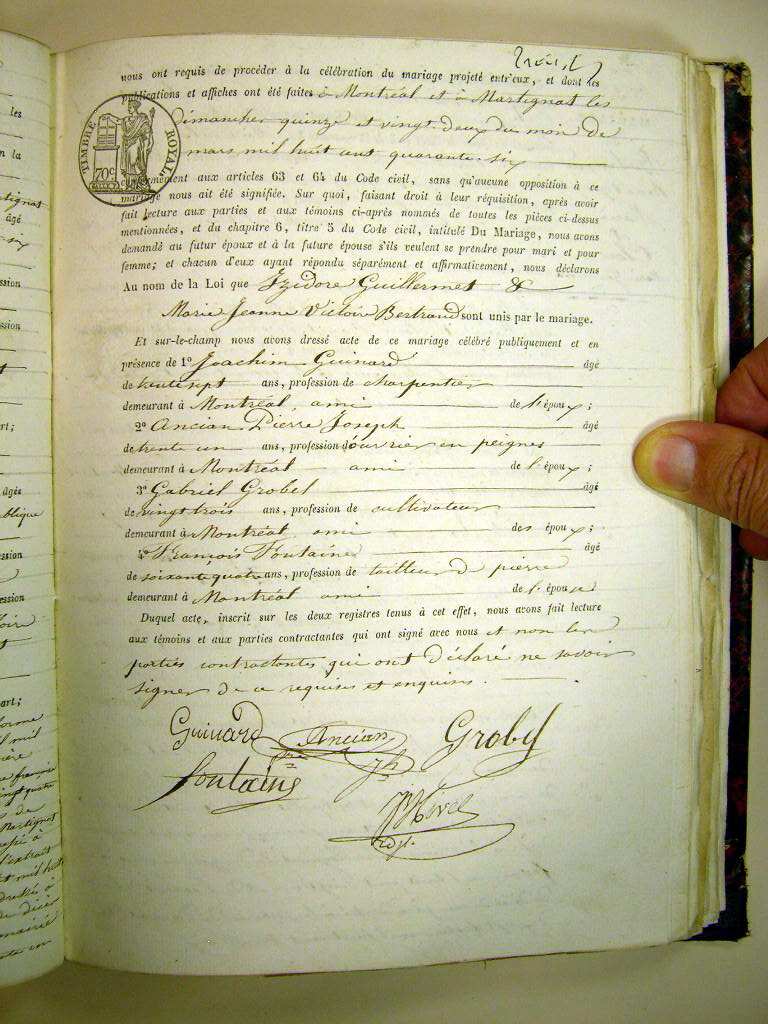 nous ont requis de procéder à la célébration du mariage projeté entr'eux, et dont les
publications et affiches ont été faites à Montréal et à Martignat les
dimanches quinze et vingt-deux du mois de
mars mil huit cent quarante six
TIMBRE ROYAL
70c
conformément aux articles 63 et 64 du Code civil, sans qu'aucune opposition à ce
mariage nous ait été signifiée. Sur quoi, faisant droit à leur réquisition, après avoir
fait lecture aux parties et aux témoins ci-après nommés de toutes les pièces ci-dessus
mentionnées, et du chapitre 6, titre 5 du Code civil, intitulé Du Mariage, nous avons
demandé au futur époux et à la future épouse s'ils veulent se prendre pour mari et pour
femme; et chacun d'eux ayant répondu séparément et affirmativement, nous déclarons
Au nom de la Loi que Izidore Guillermet &
Marie Jeanne Victoire Bertrand sont unis par le mariage.
Et sur-le-champ nous avons dressé acte de ce mariage célébré publiquement et en
présence de 1º Joachim Guinard âgé
de trente sept ans, profession de charpentier
demeurant à Montréal, ami de l'époux;
2º Ancian Pierre Joseph âgé
de trente un ans, profession d'ouvrier en peignes
demeurant à Montréal ami de l'époux;
3º Gabriel Grobel âgé
de vingt trois ans, profession de cultivateur
demeurant à Montréal, ami des époux;
4º François Foulaine âgé
de soixante quatre ans, profession de tailleur de pierre
demeurant à Montréal ami de l'épouse
Duquel acte, inscrit sur les deux registres tenus à cet effet, nous avons fait lecture
aux témoins et aux parties contractantes qui ont signé avec nous et non les
parties contractantes qui ont déclaré ne savoir
signer de ce requises et enquises.
Guinard Ancian Grobel
Pre Jh
foulaine
adjt.